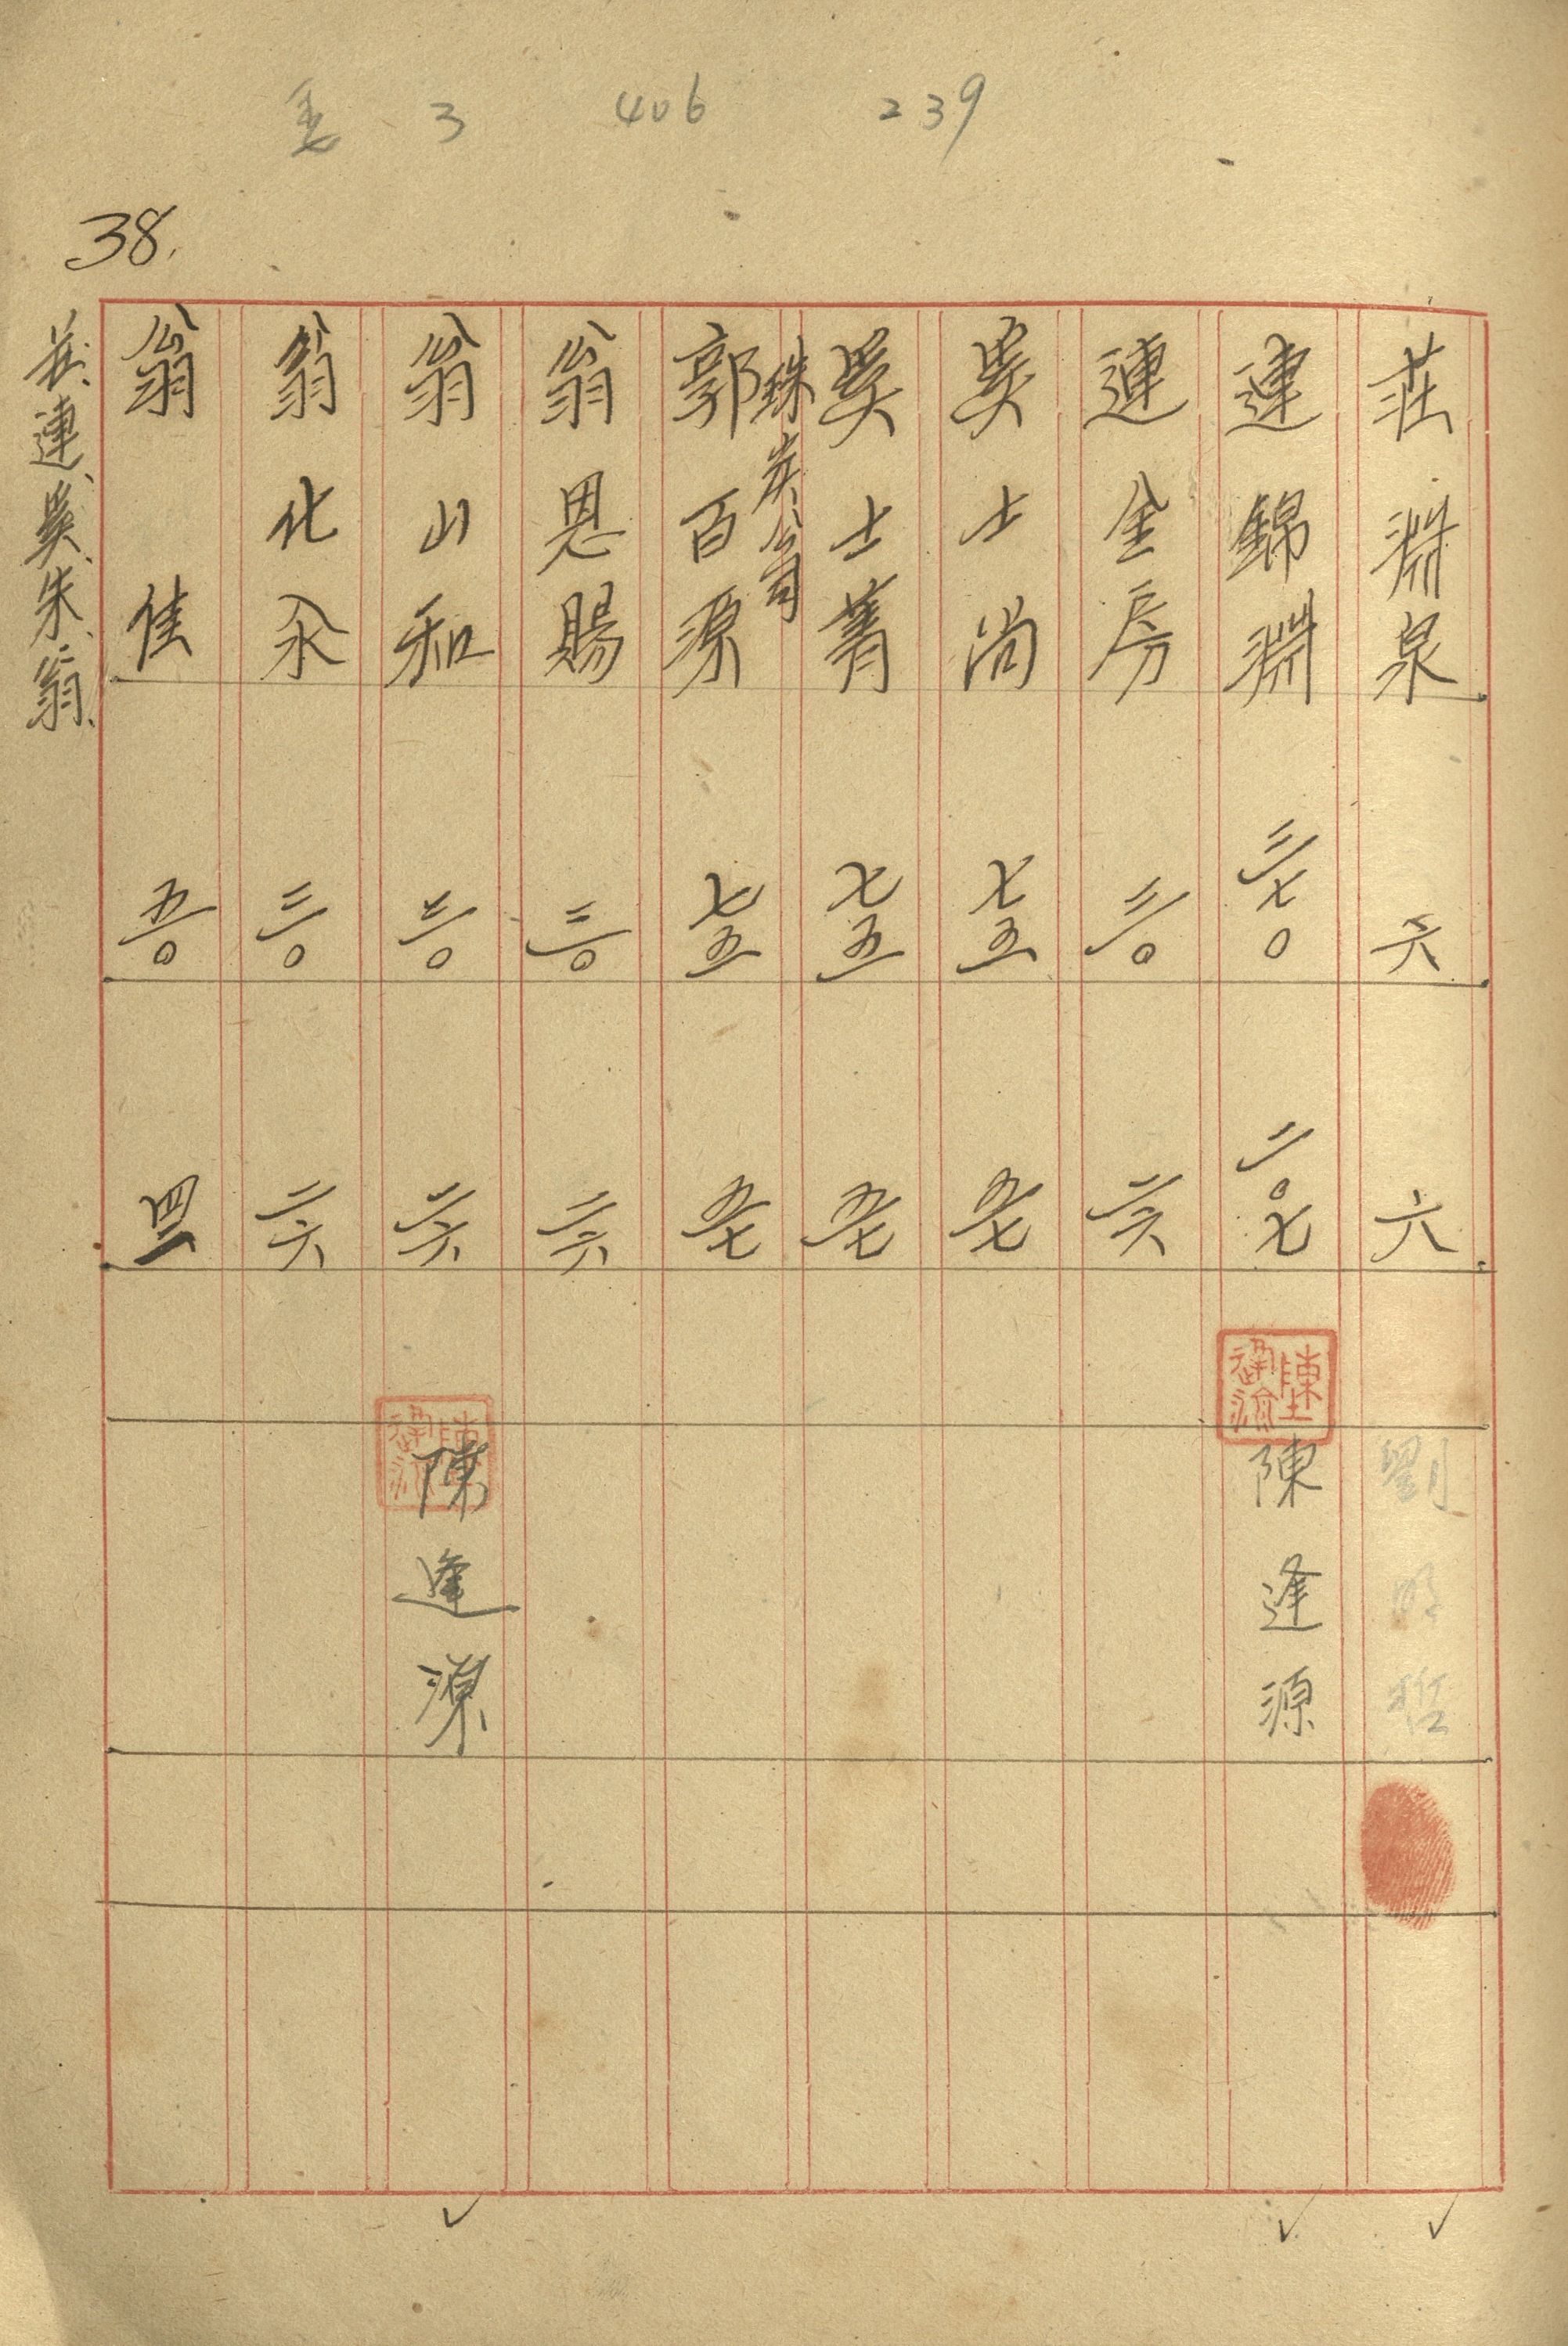 3 406 239
38.
莊淵泉 六 六
連錦淵 三七〇 二〇七 陳逢源
連金房 三〇 二六
吳士尚 七五 五七
吳士菁 七五 五七
珠炭公司
郭百源 七五 五七
翁恩賜 三〇 二六
翁山和 三〇 二六 陳逢源
翁化永 三〇 二六
翁佳 五〇 四一
莊、連、吳、朱、翁、